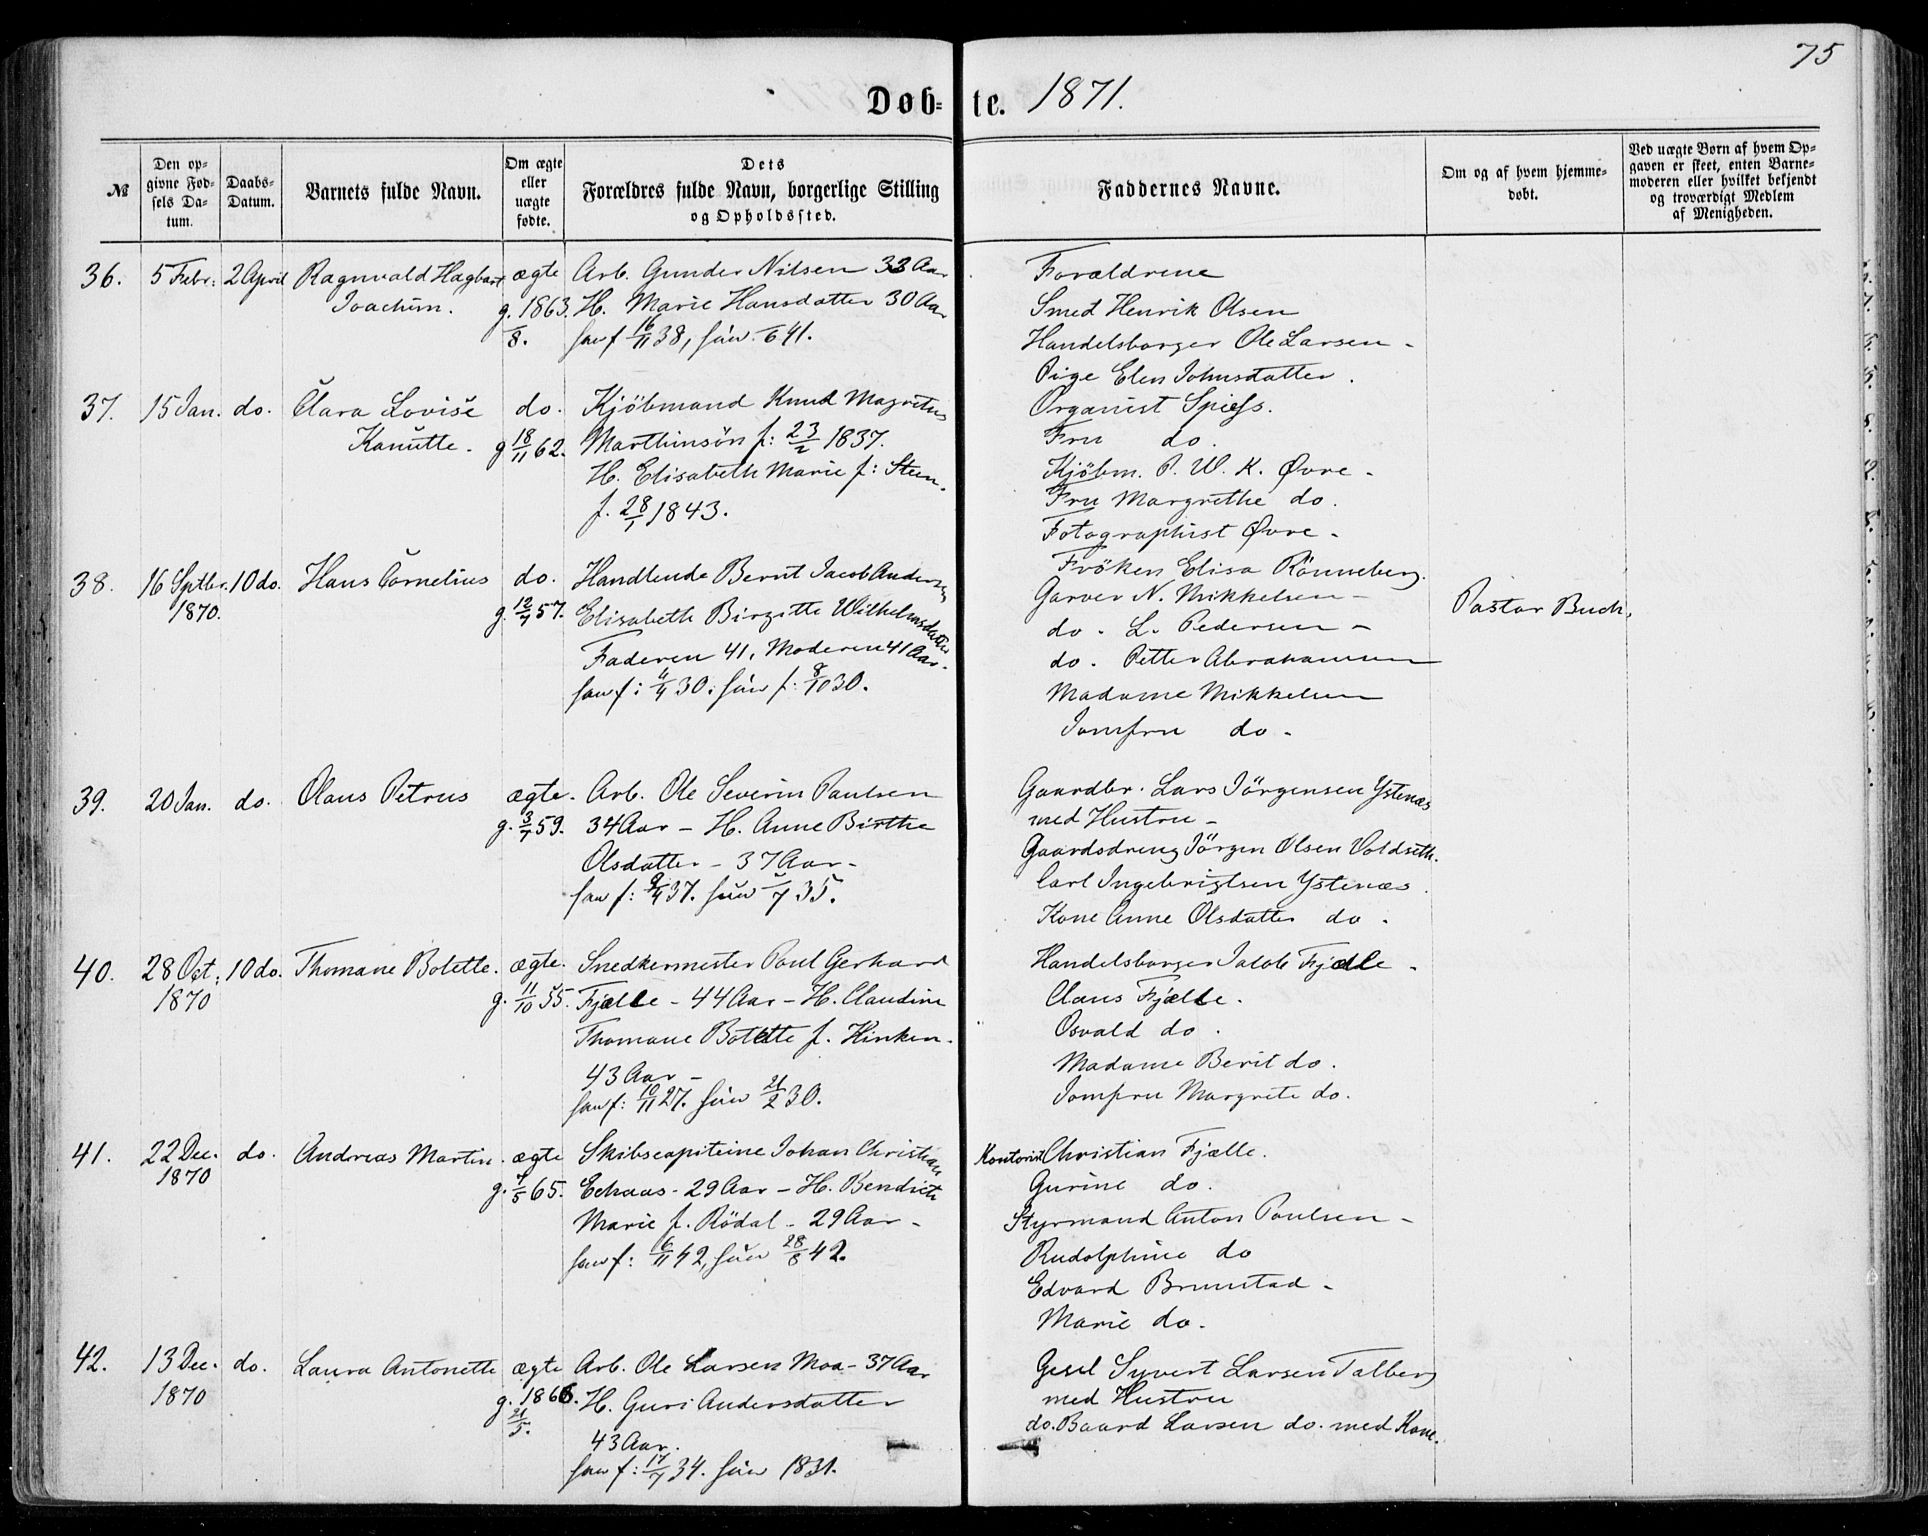 75
Døb= te. 1871.
№
Den opgivne Fødsels Datum.
Daabs-Datum.
Barnets fulde Navn.
Om ægte eller uægte fødte.
Dets Forældres fulde Navn, borgerlige Stilling og Opholdssted.
Faddernes Navne.
Om og af hvem hjemmedøbt.
Ved uægte Børn af hvem Opgaven er skeet, enten Barnemoderen eller hvilket bekjendt og troværdigt Medlem af Menigheden.
36. 5 Febr: 2 April Ragnvald Hagbart ægte Arb. Gunder Nilsen 33 Aar
Joachim. g. 1863. H. Marie Hansdatter 30 Aar
8. han f 16/11 38, hun 41.
Forældrene
Smed Henrik Olsen
Handelsborger Ole Larsen -
Pige Elen Johnsdatter.
37. 15 Jan. do. Clara Lovise do. Kjöbmand Knud Magretus
Kanutte. g 18/11 62. Marthinsön f: 23/2 1837.
H. Elisabeth Marie f: Steen.
f. 28/1 1843.
Organist Spiess.
Fru do.
Kjöbm. P. W. K. Øvre -
Fru Margrethe do.
Fotographist Øvre -
Fröken Elisa Rönneberg.
38. 16 Sptbr. 10 do. Hans Cornelius do. Handlende Bernt Jacob Andersen
1870. g. 12/7 57. Elisabeth Birgitte Wilhelmsdatter
Faderen 41, Moderen 41 Aar.
han f: 4/4 30. hun f: 8/10 30.
Garver N. Mikkelsen -
do. L. Pedersen -
do. Petter Abrahamsen
Madame Mikkelsen
Jomfru do -
Pastor Buch,
39. 20 Jan. do. Olaus Petrus ægte. Arb. Ole Severin Paulsen
g. 3/7 59. 34 Aar - H. Anne Birthe
Olsdatter - 37 Aar -
han f: 9/4 37. hun 7 35.
Gaardbr. Lars Jörgensen Ystenæs
med Hustru -
Gaardsdreng Jörgen Olsen Voldseth.
Carl Ingebrigtsen Ystenæs.
Kone Anne Olsdatter do -
40. 28 Oct: 10 do. Thomane Bolette. ægte. Snedkermester Poul Gerhard
1870 g. 11/10 55. Fjelle - 44 Aar - H. Claudine
Thomane Bolette f. Hinken.
43 Aar -
han f: 10/11 27. hun 21/2 30.
Handelsborger Jakob Fjælle -
Claus Fjælle.
Osvald do.
Madame Berit do.
Jomfru Margrete do.
41. 22 Dec. do. Andreas Martin. ægte Skibscapiteine Johan Christian
1870 g. 7/5 65. Echaas - 29 Aar - H. Bendicte
Marie f. Rödal - 29 Aar -
han f: 6/11 42, hun 28/8 42.
Kontorist Christian Fjælle.
Gurine do.
Styrmand Anton Poulsen -
Rudolphine do
Edvard Brunstad -
Marie do.
42. 13 Dec. do. Laura Antonette ægte Arb. Ole Larsen Moa - 37 Aar
1870 g. 1866. H. Guri Andersdatter
21/5. 43 Aar.
han f: 17/7 34. hun 1831.
Gesel Syvert Larsen Talberg
med Hustru
do. Baard Larsen do. med Kone.